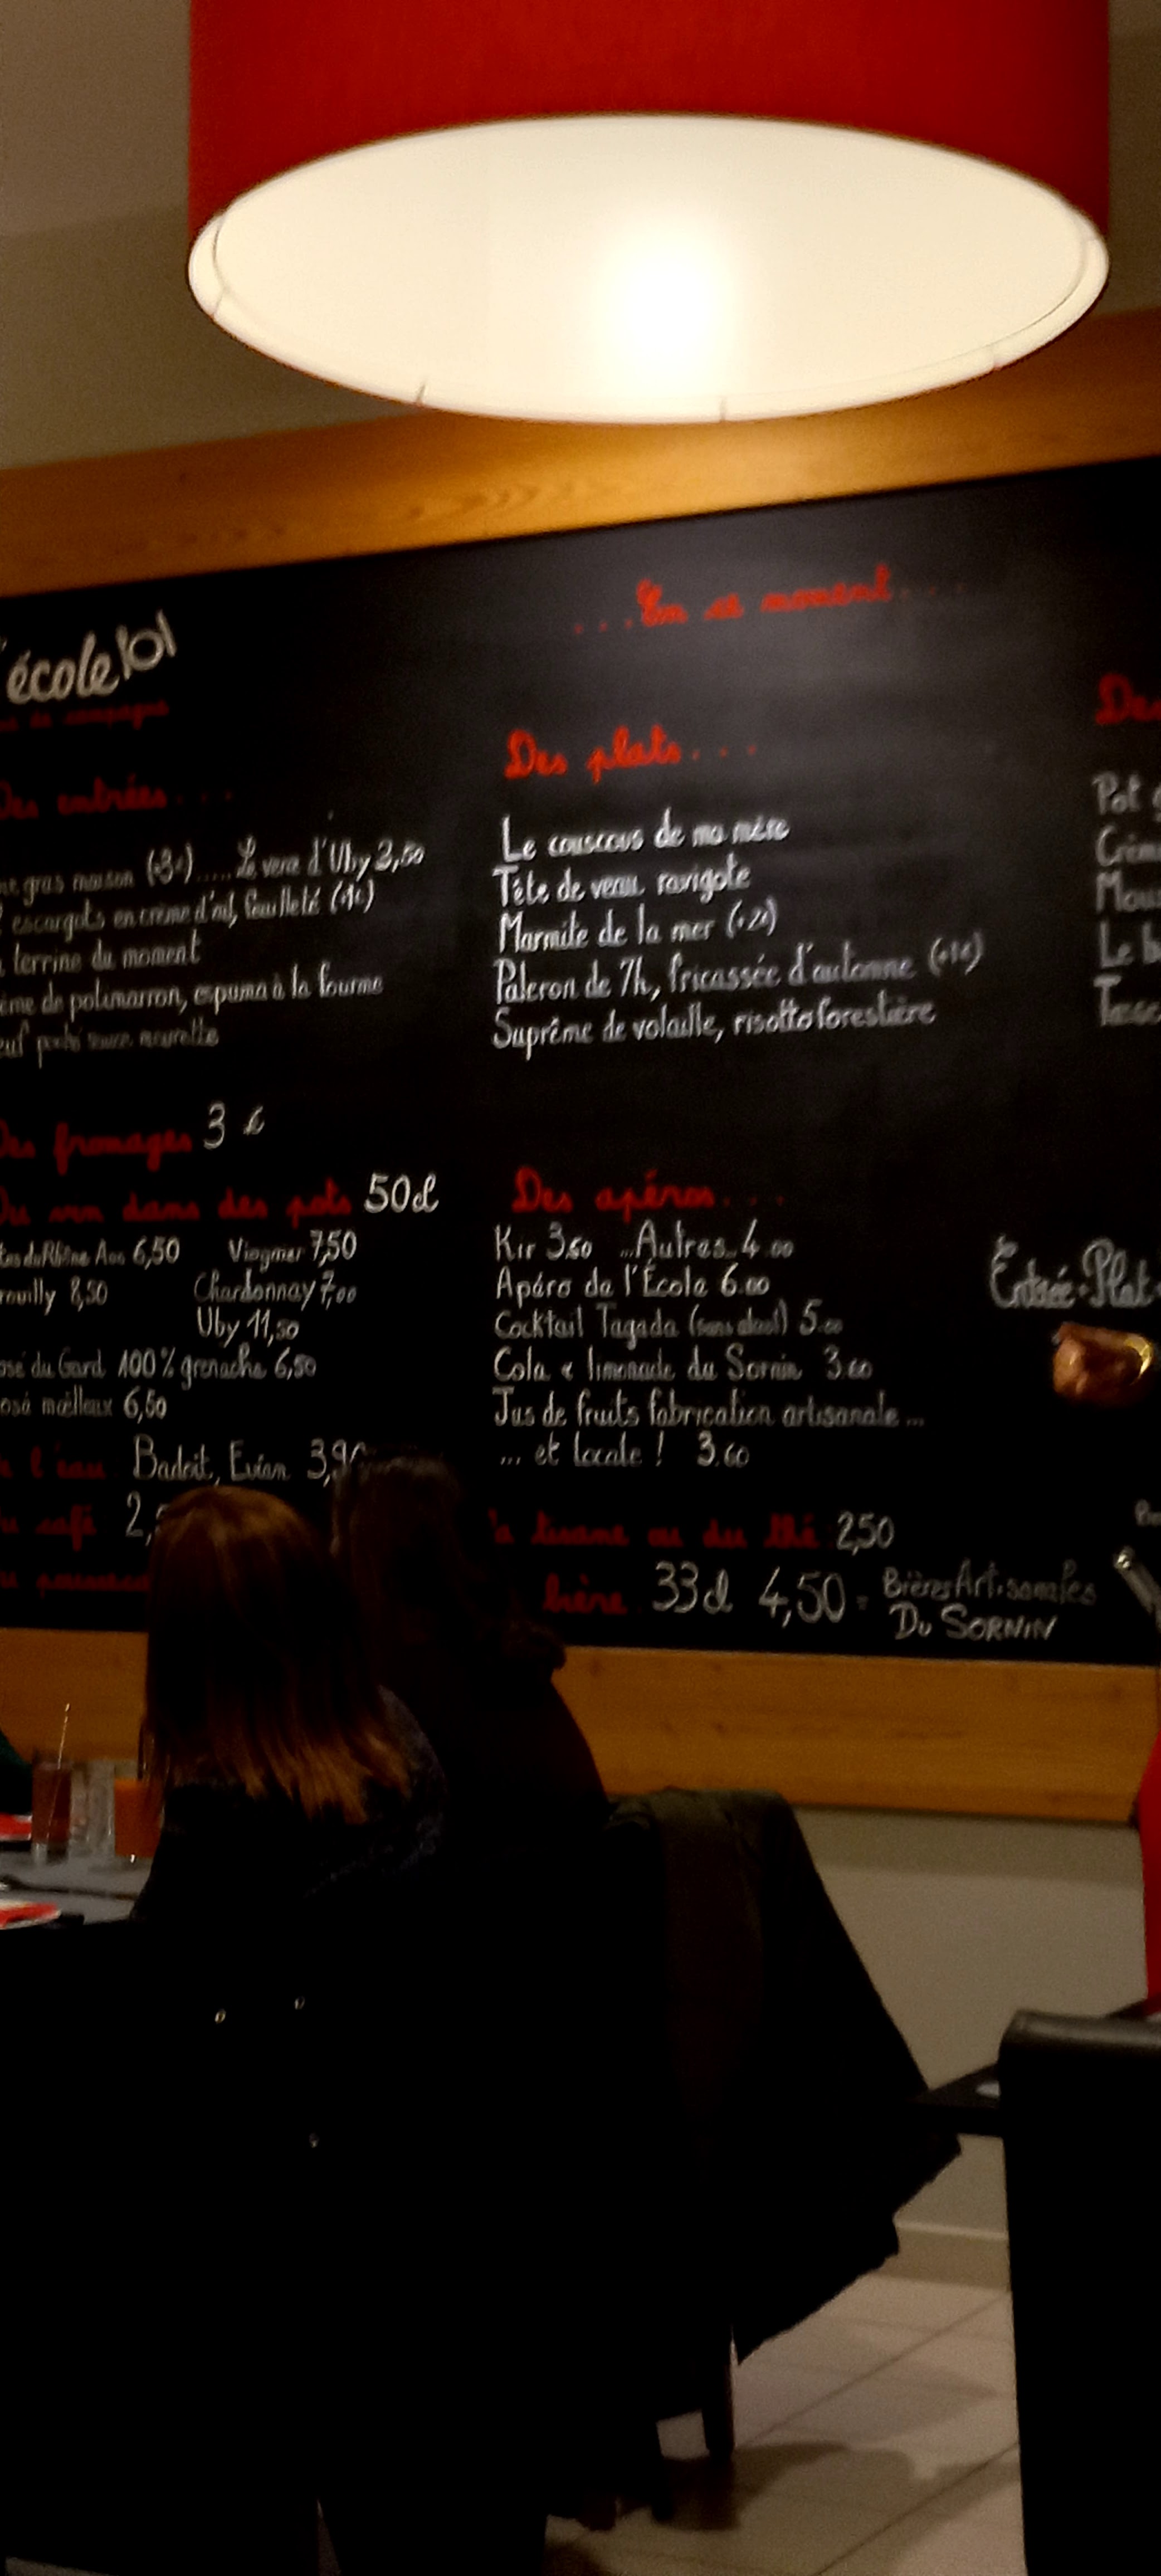 école
... En ce moment ...
Des entrées ...
gras maison (+3€) ..... Le verre d'Uby 3,50
escargots en crème d'ail, feuilleté (+1€)
terrine du moment
de potimarron, espuma à la fourme
Des fromages 3 €
Du vin dans des pots 50cl
6,50 Viognier 7,50
8,50 Chardonnay 7,00
Uby 11,50
du Gard 100% grenache 6,50
moëlleux 6,50
l'eau Badoit, Evian
café
Des plats ...
Le couscous de ma mère
Tête de veau ravigote
Marmite de la mer (+2€)
Paleron de 7h, fricassée d'automne (+1€)
Suprême de volaille, risotto forestière
Des apéros ...
Kir 3.60 ... Autres.. 4.00
Apéro de l'École 6.00
Cocktail Tagada (sans alcool) 5.00
Cola & limonade du Sornin 3.60
Jus de fruits fabrication artisanale ...
... et locale ! 3.60
tisane ou du thé 2,50
bière 33cl 4,50 = Bières Artisanales
DU SORNIN
Pot
Le
Entrée + Plat